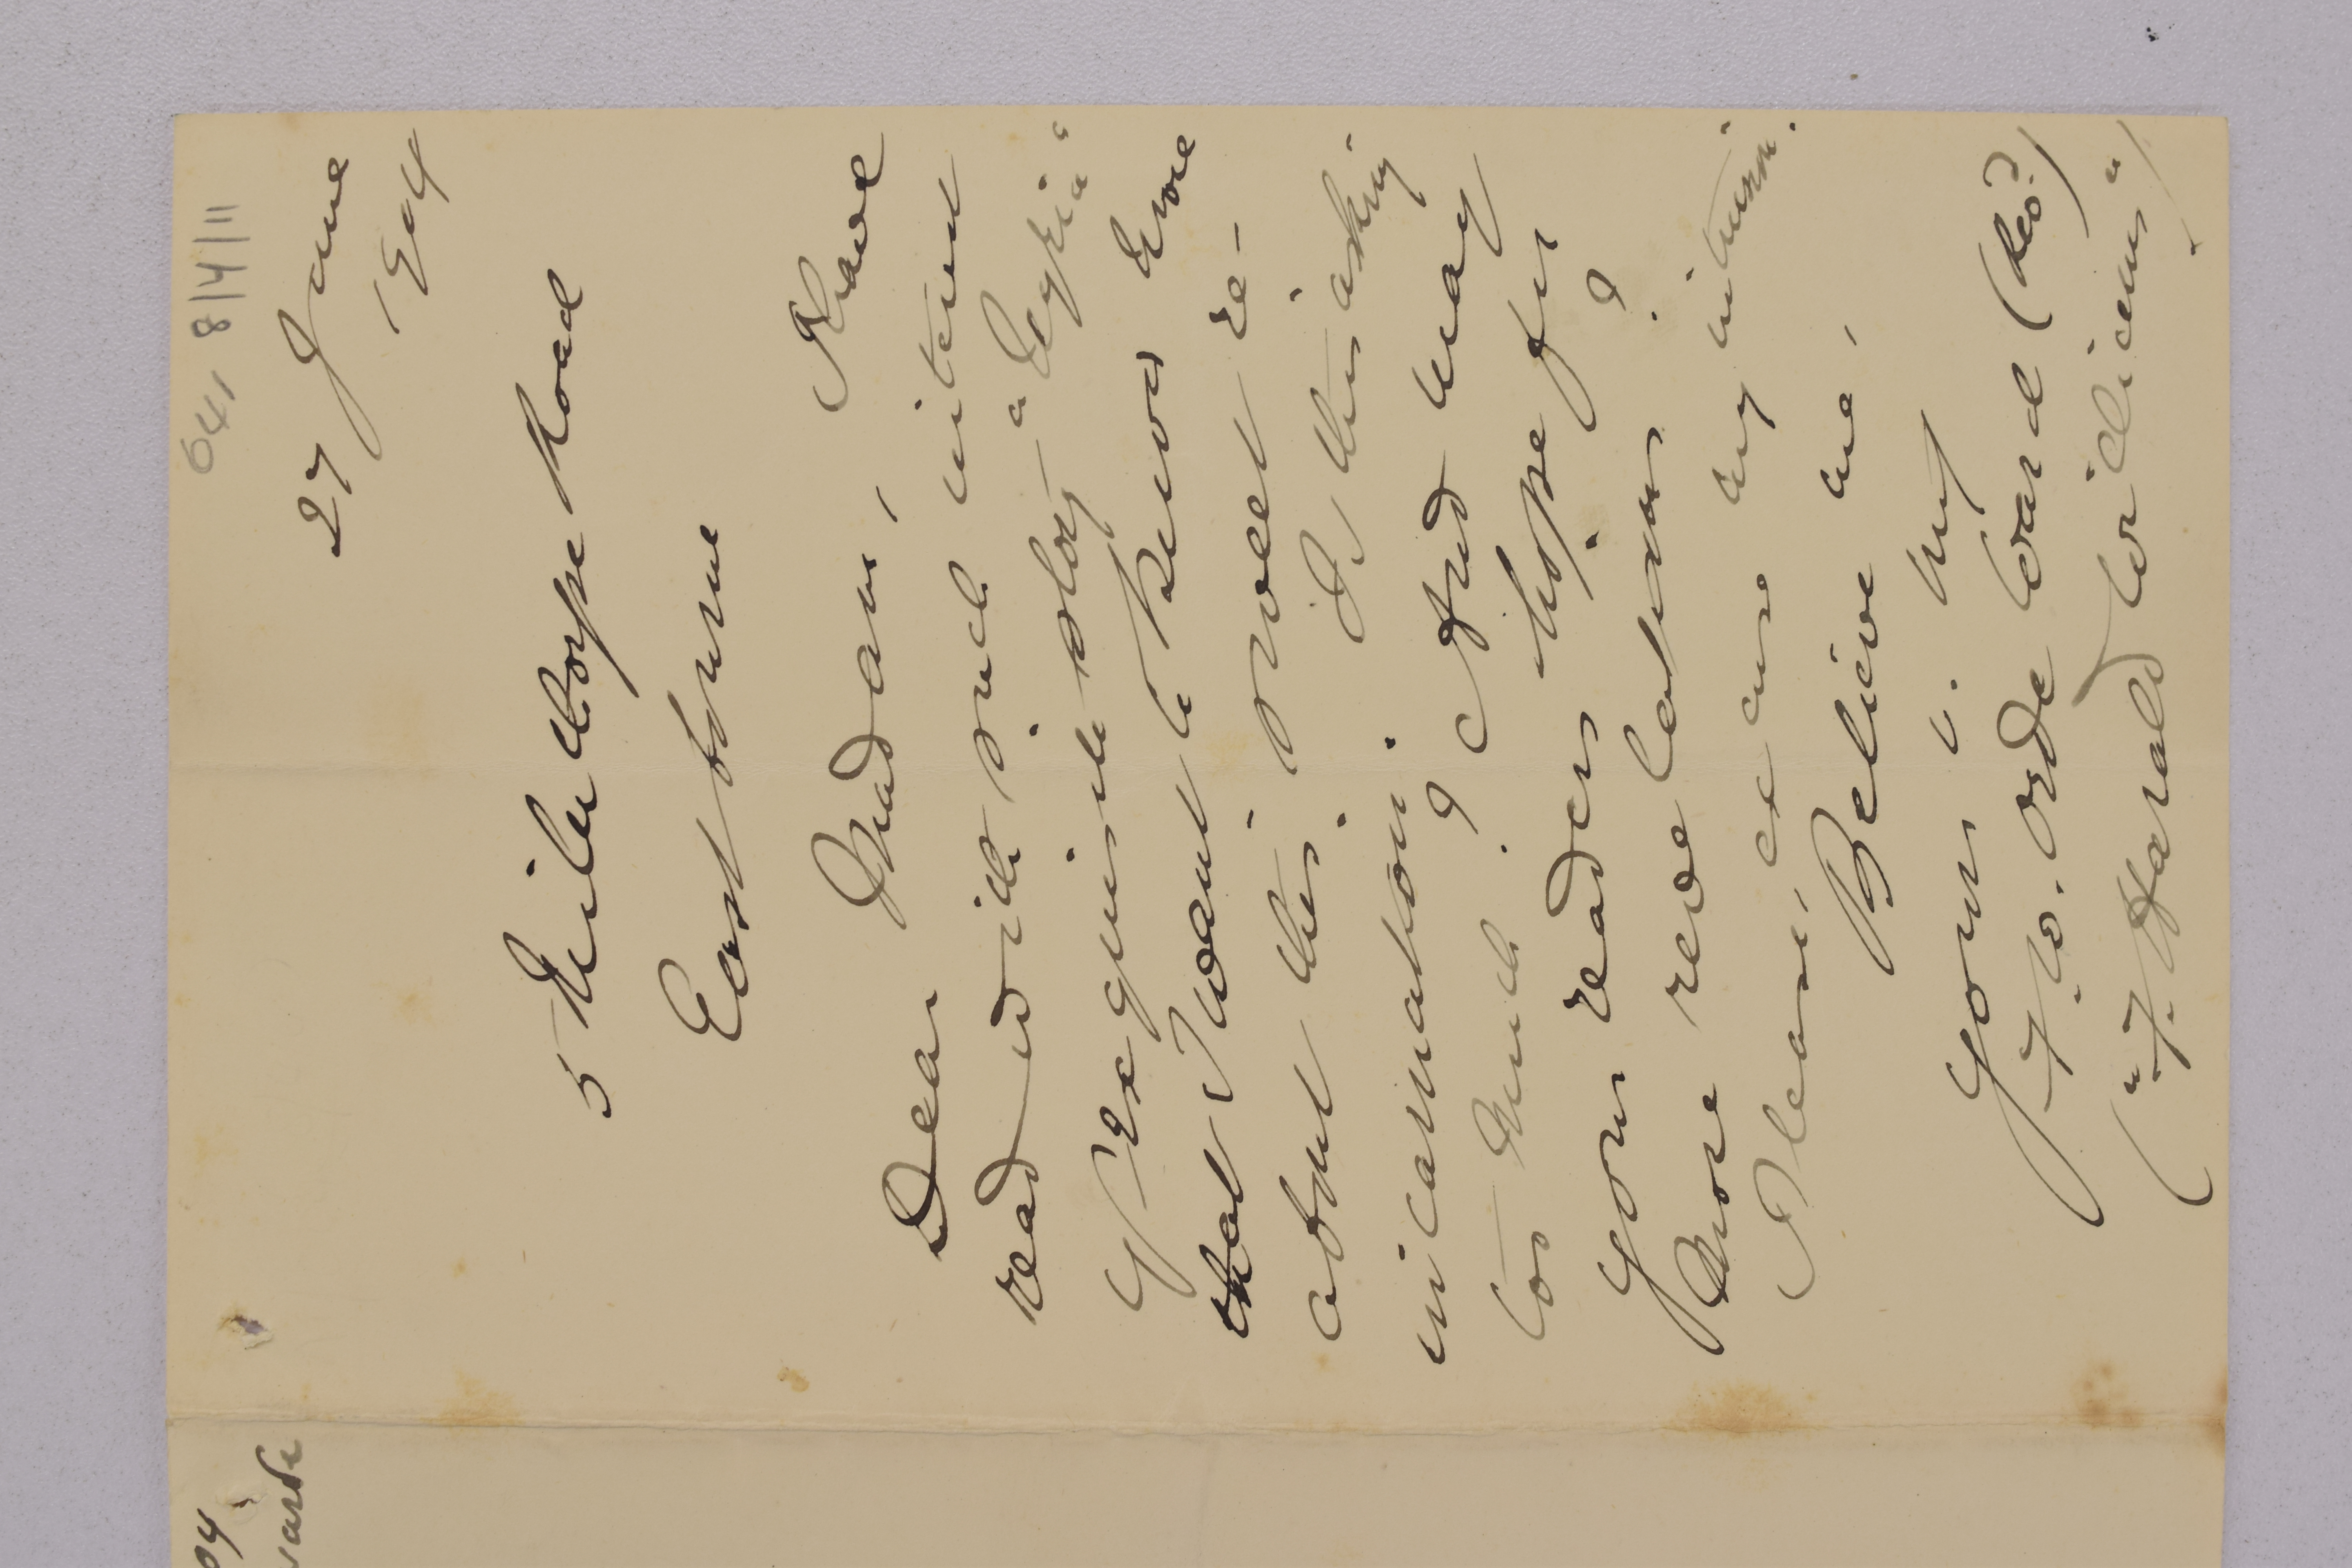 641 8/4/11
27 June
1904
5 Milnthorpe Road
Eastbourne
Dear Madam, I have
read with such interest
yr exquisite story "Egeria"
that I want to know more
about this sweet re-
incarnation. Is this asking
too much? And may
your readers hope for
more revelations?
Please, excuse my intrusion.
Believe me,
Yours v. try
F. W. Orde Ward (Rev?)
("F. Harald Williams")
04
warde